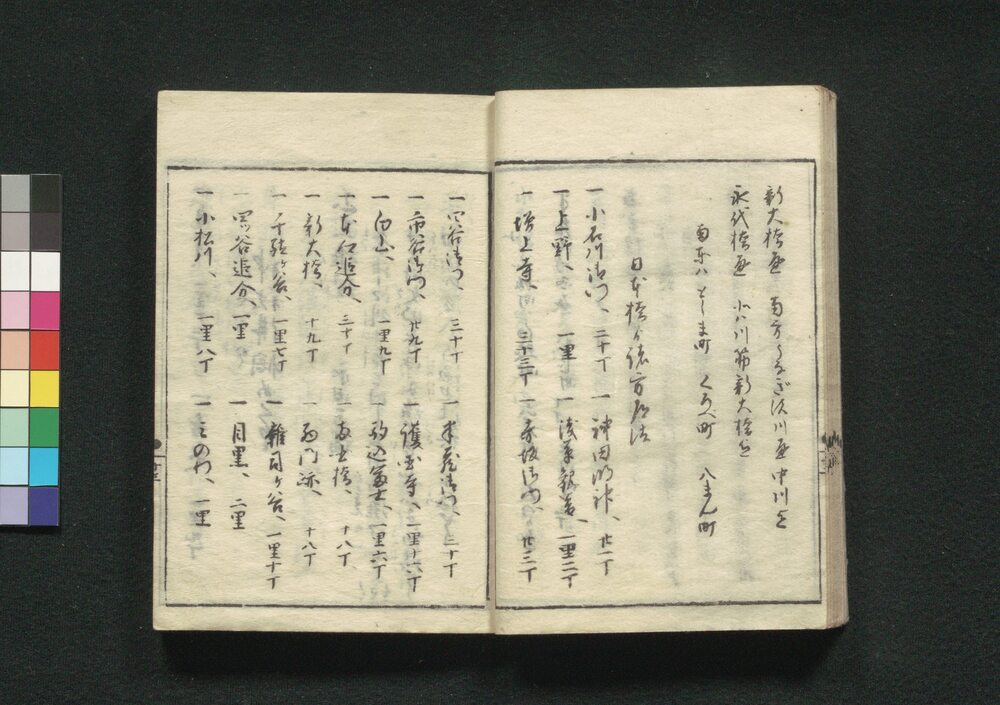 新大橋 南方 川 中川迄
永代橋 小八川筋新大橋迄
南東ハ 町 町 町
日本橋ゟ諸方道法
一 小石川御門、二十丁 一 神田明神、廿一丁
一 上野、一里 一 浅草観音、一里二丁
一 増上寺、三十三丁 一 赤坂御門、廿三丁
一 四谷御門、三十丁 一 半蔵御門、二十丁
一 市谷御門、廿九丁 一 護国寺、一里十六丁
一 白山、一里九丁 一 駒込富士、一里六丁
一 本江追分、三十丁 一 橋、十八丁
一 新大橋、十九丁 一 門跡、十八丁
一 千駄ヶ谷、一里七丁 一 雑司ヶ谷、一里十丁
一 四谷追分、一里 一 目黒、二里
一 小松川、一里八丁 一 ミのわ、一里